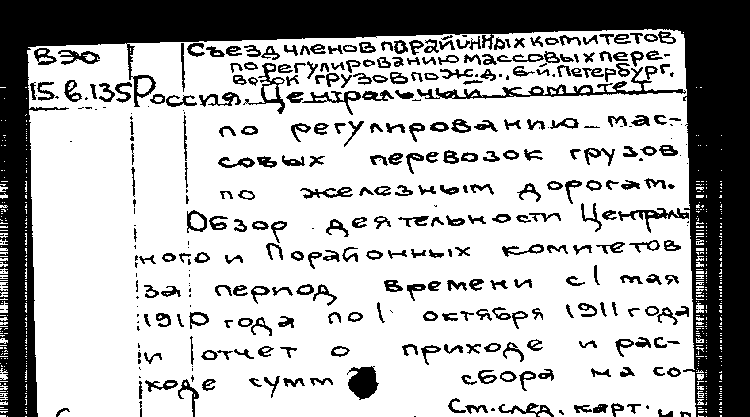 ВЭО
Съезд членов порайонных комитетов
по регулированию массовых пере-
возок грузов по ж.д., 6-й. Петербург.
15.6.135 Россия. Центральный комитет
по регулированию мас-
совых перевозок грузов
по железным дорогам.
Обзор деятельности Централь
ного и Порайонных комитетов
за период времени с 1 мая
1910 года по 1 октября 1911 года
и отчет о приходе и рас-
ходе сумм сбора на со-
См. след. карт.